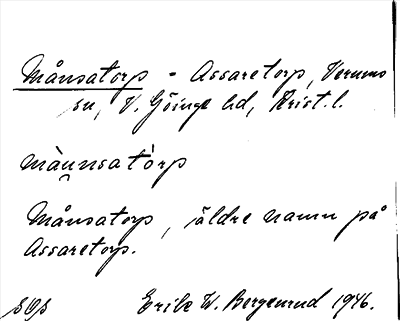 Månsatorp = Assaretorp, Verums
sn, V. Göinge hd, Krist. l.
màu̯nsatòrp
Månsatorp, äldre namn på
Assaretorp.
Erik W. Bergenrud 1946.